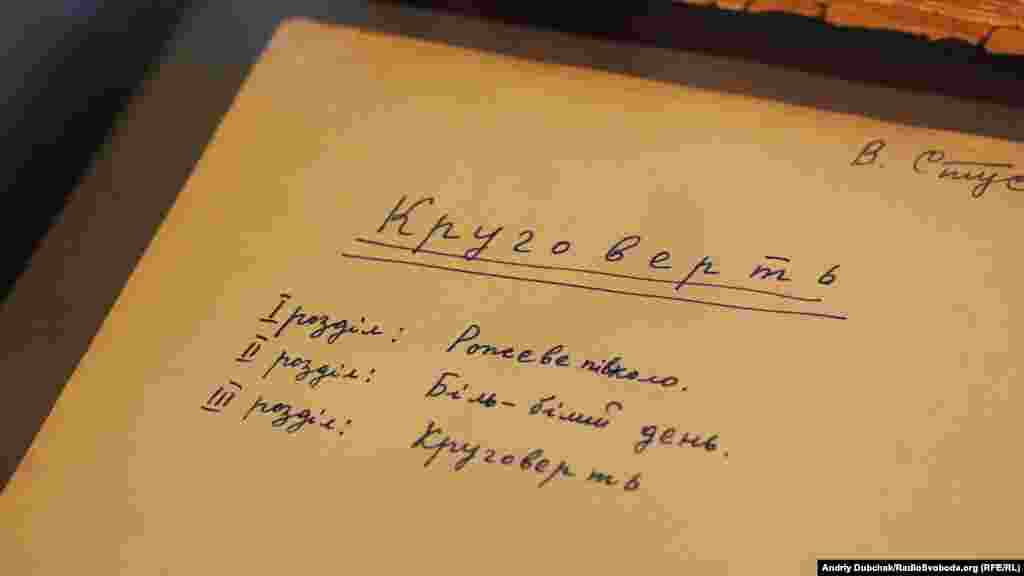 В. Стус
Круговерть
I розділ: Рожеве півколо.
II розділ: Біль-білий день.
III розділ: Круговерть
Andriy Dubchak/RadioSvoboda.org (RFE/RL)